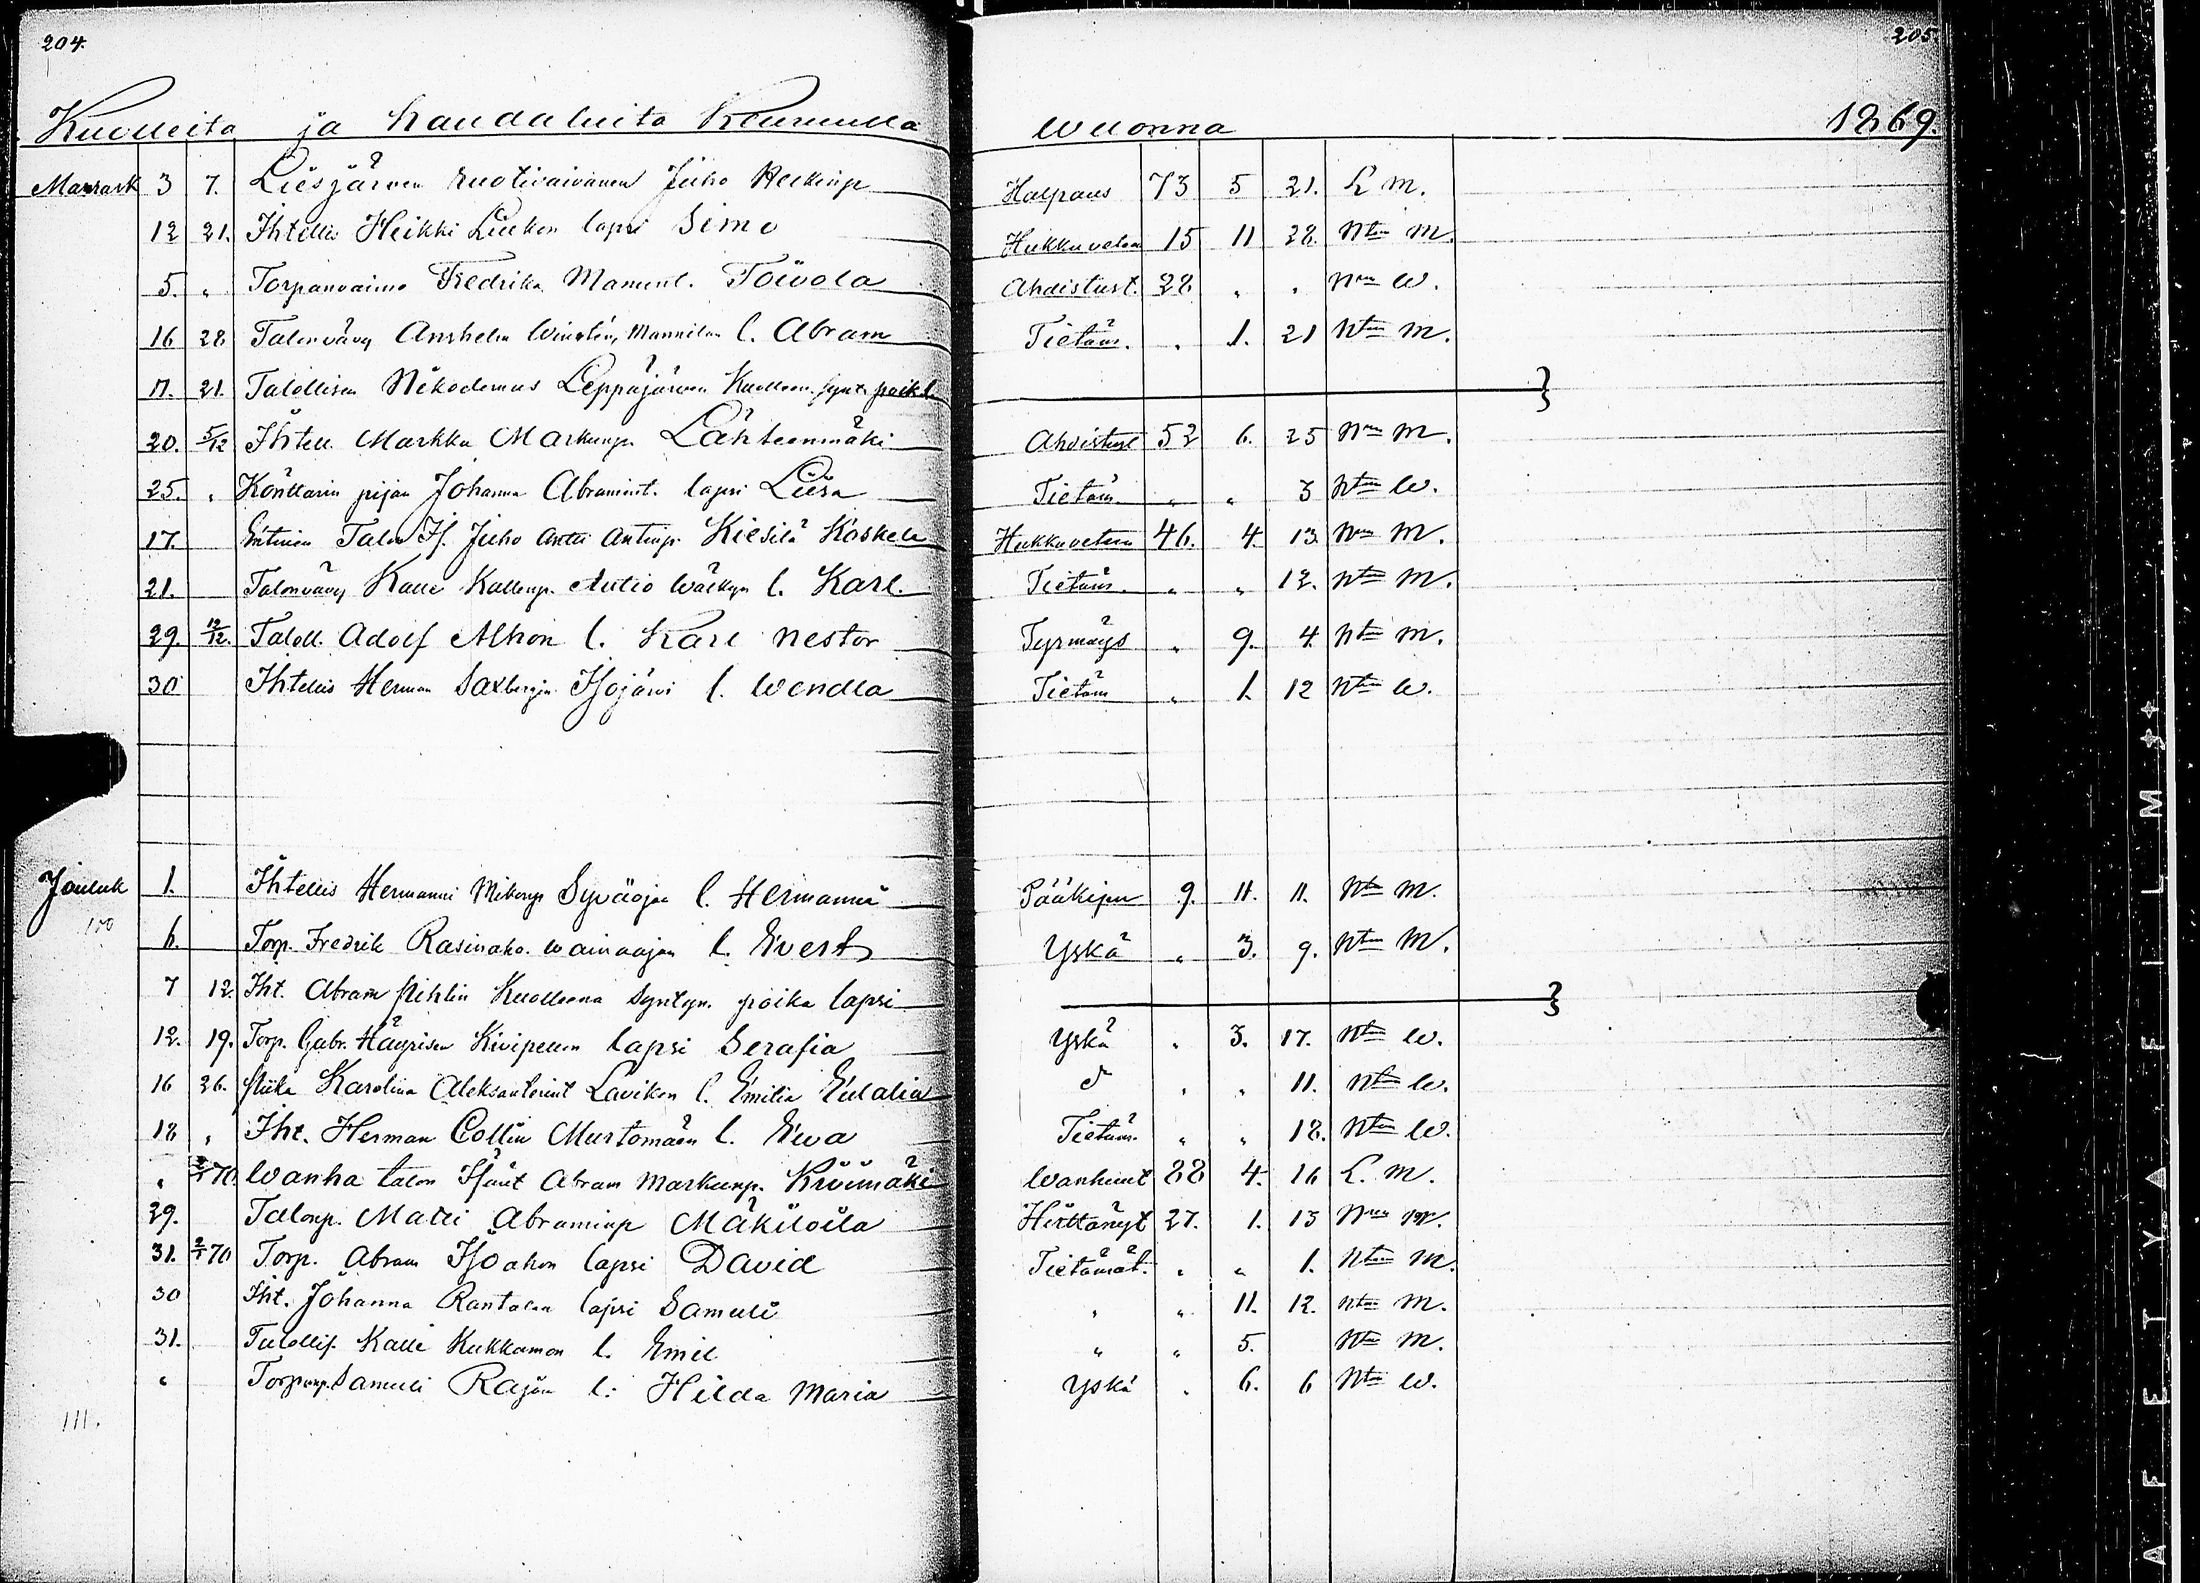 204. 205
Kuolleita ja haudatuita Keuruulla wuonna 1869.
Marrask 3 7. Liesjärven ruotivaivanen Juho Heikinp Halpaus 73 5 21. L M.
12 21. Ihtellis Heikki Liukon lapsi Simo Hukkuvetee 15 11 28. Ntön M.
5. " Torpanvaimo Fredrika Manuul. Toivola Ahdistust. 28 " " Nnu W.
16 28 Talonvävy Anshelm Mannilan l. Abram Tietäm. " 1. 21 Ntön M.
17. 21. Talollisen Nikodemus Leppäjärven Kuolleen. synt. poikl.
20. 5/12 Ihtell. Markku Markunp. Lähteenmäki Ahdistust 52 6. 25 Nnu M.
25. " Könttärin pijan Johanna Abramint. lapsi Liisa Tietäm. " " 3 Ntön W.
17. Entinen Talon Is. Juho Antti Antinp. Kiesilä Koskela Hukkuveteen 46. 4. 13. Nnu M.
21. Talonvävy Kalle Kallenp. Autio l. Karl. Tietäm. " " 12. Ntön M.
29. 12/12. Taloll. Adolf Alhon l. Karl Nestor Tyrmäys " 9. 4. Ntön M.
30 Ihtellis Herman Saxbergin Isojärvi l. Wendla Tietäm " 1. 12 Ntön W.
Jouluk 1. Ihtellis Hermanni Syväojan l. Hermanni Pääkipu 9. 11. 11. Ntön M.
100
6. Torp. Fredrik Rasinaho. wainaajan l. Evert Yskä " 3. 9. Ntön M.
7 12. Iht. Abram Pihlin Kuolleena syntyn. poika lapsi
12. 19. Torp. Gabr. Häyrisen Kivipellon lapsi Serafia Yskä " 3. 17. Ntön W.
16 26. Piika Karolina Aleksanterint Lavikon l. Emilia Eulalia d " " 11. Ntön W.
18 " Iht. Herman Collin Murtomäen l. Ewa Tietäm. " " 18. Ntön W.
" 2/1 70. Wanha talon Isänt Abram Markunp. Wanhuut 88 4. 16 L. M.
29. Talonp. Matti Abraminp Mäkiloila Hirttänyt 27. 1. 13 Nnu M.
31. 2/1 70 Torp. Abram Isoahon lapsi David Tietämät. " " 1. Ntön M.
30 Iht. Johanna Rantalan lapsi Samuli " " 11. 12. Ntön M.
31. Talollis. Kalle Kukkamon l. Emil " " 5. Ntön M.
" Torp.np. Samuli Rajan l. Hilda Maria Yskä " 6. 6 Ntön W.
111.
AFETY FILM